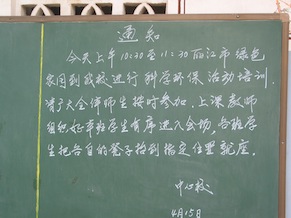 通知
今天上午10:30至11:30丽江市绿色
家园到我校进行科学环保活动培训,
请广大全体师生按时参加. 上课教师
组织好本班学生有序进入会场, 各班学
生把各自的凳子抬到指定位置就座.
中心校
4月15日